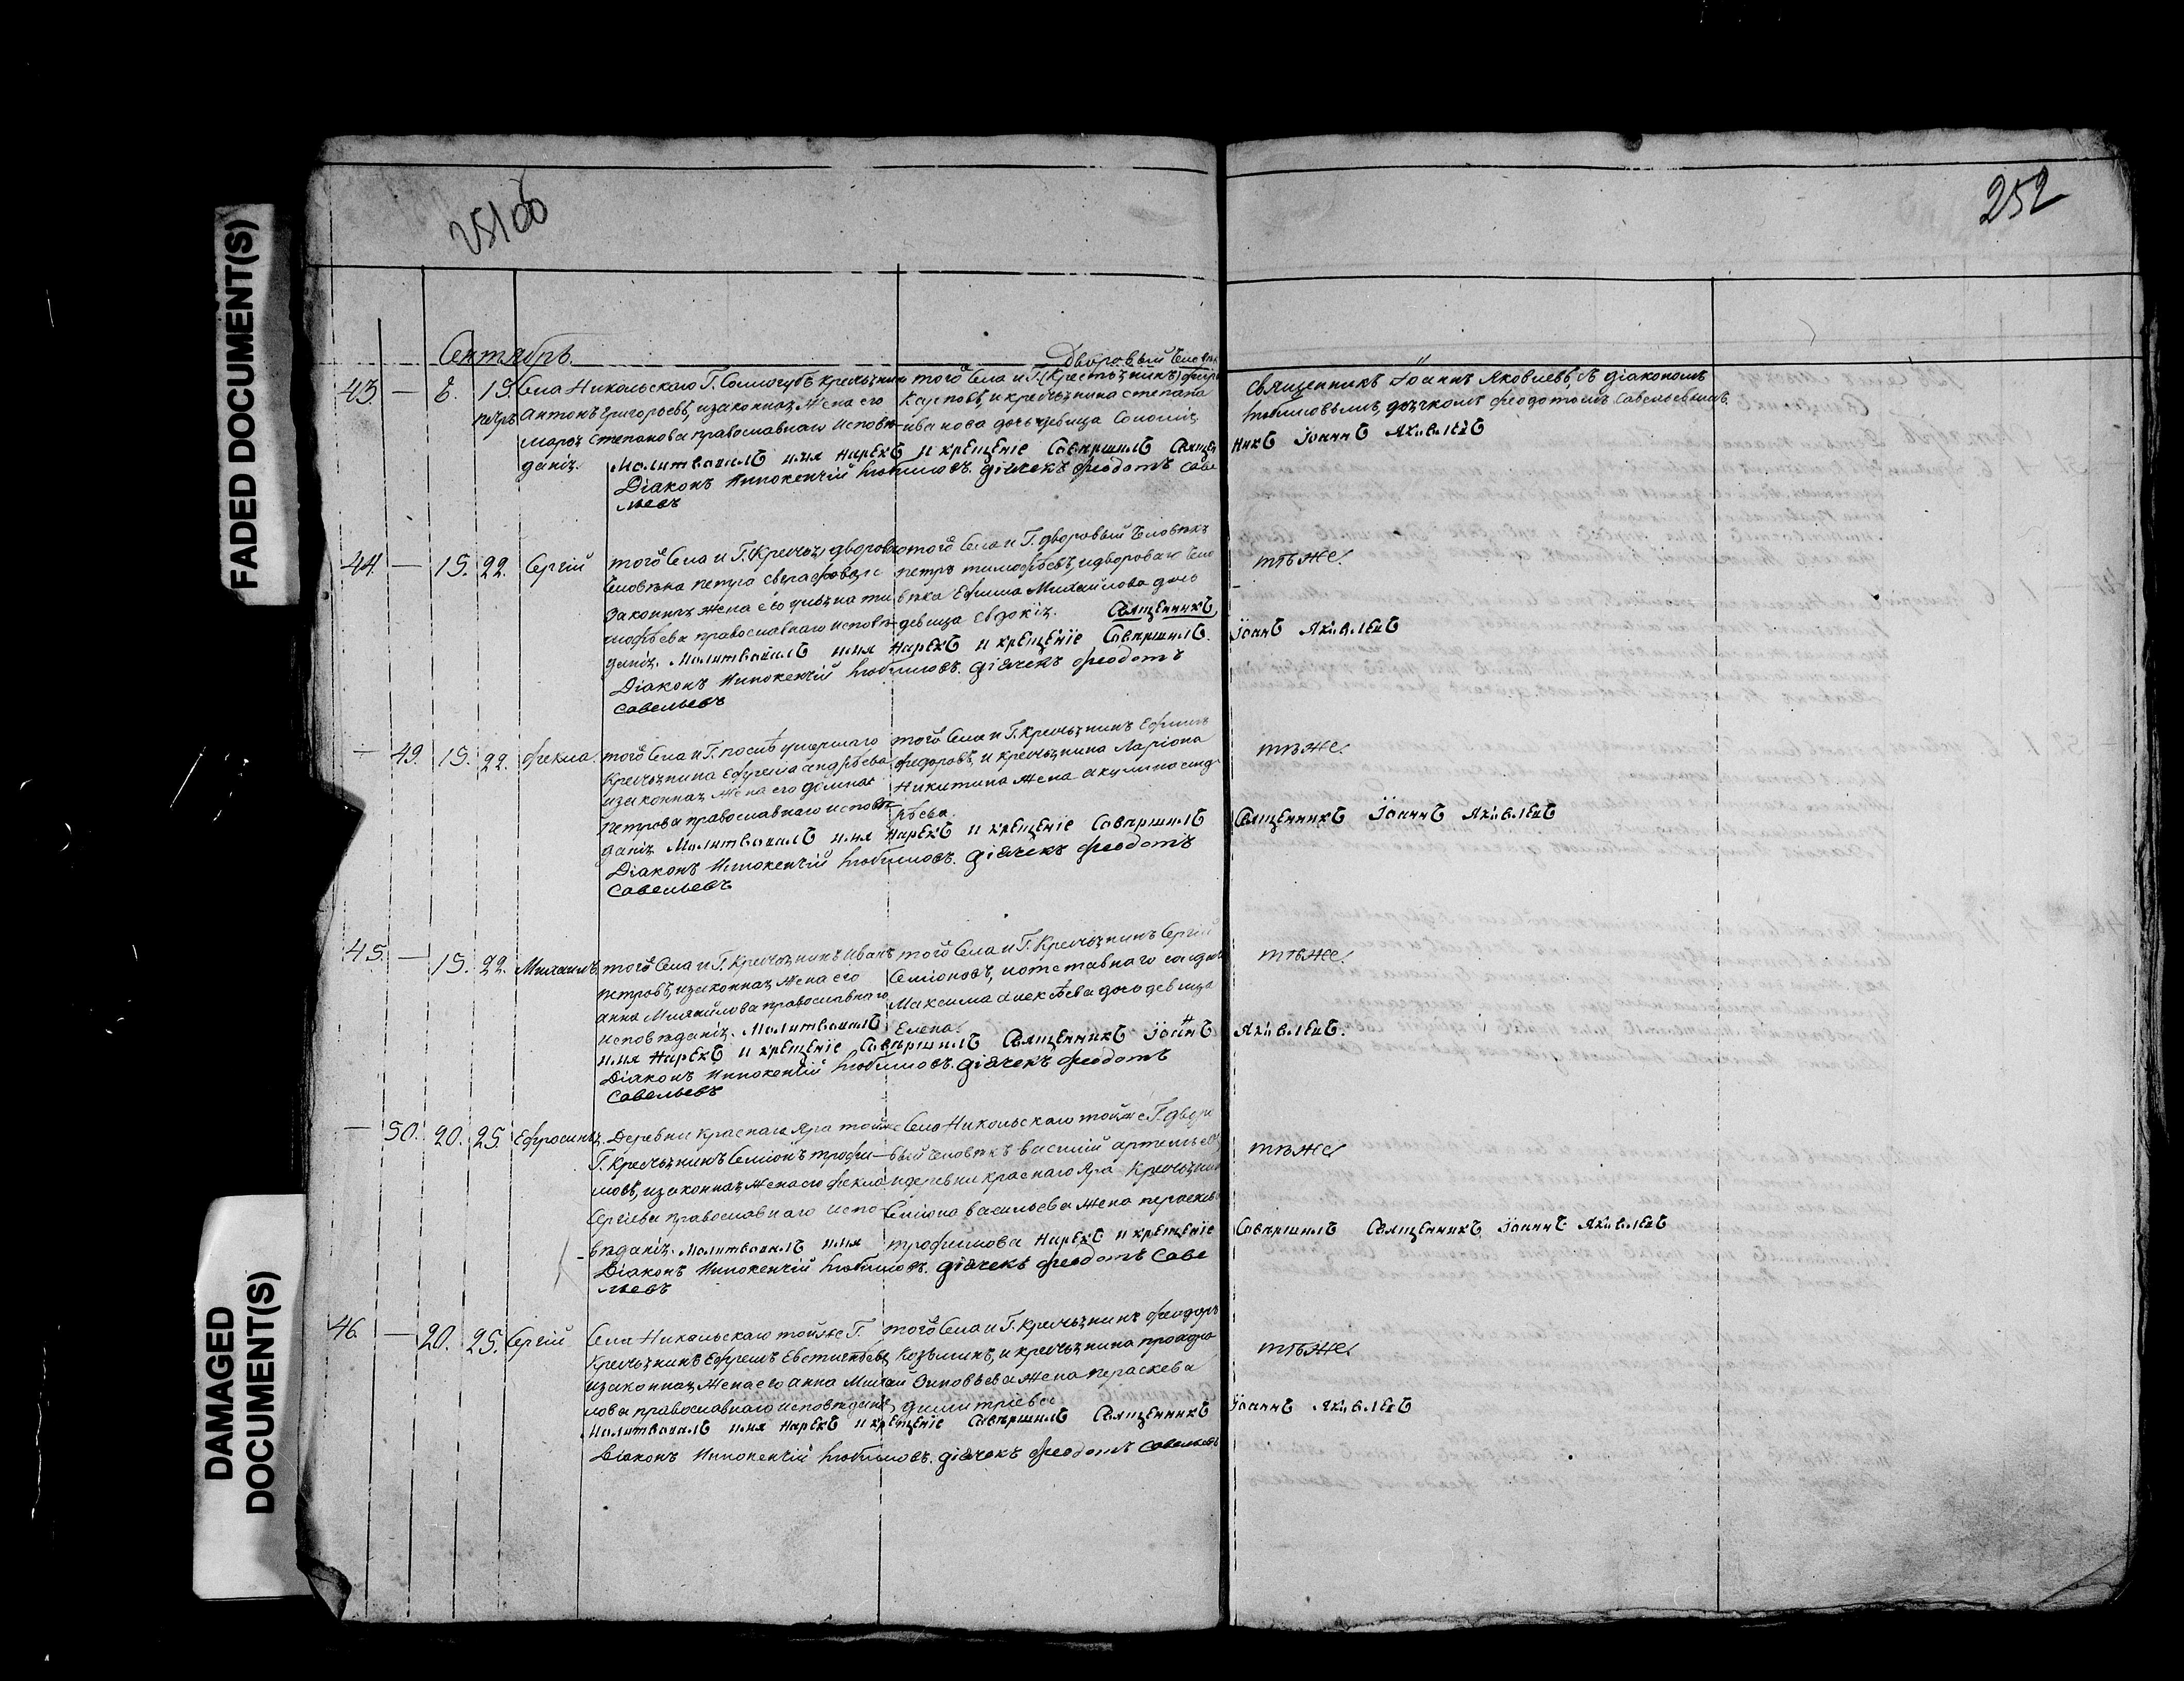 FADED DOCUMENT(S)
DAMAGED DOCUMENT(S)
251об
252
Сентябрь.
43. — 8. 15. Петръ
Села Никольскаго Г. Сологубъ крестьянинъ
Антонъ Григорьевъ, изаконная жена его
Степанова православнаго исповѣ-
данія.
Дворовый Чело
того Села и Г. (Крестьянинъ)
Карповъ, и крестьянина Степана
Иванова дочь девица
Священникъ Іоаннъ Яковлевъ, съ діакономъ
Любимовымъ, дьячкомъ Феодотомъ Савельевымъ.
Молитвовалъ имя нарекъ и крещеніе Совершилъ Священ
никъ Іоаннъ Яковлевъ
Діаконъ Иннокентій Любимовъ. діячекъ Феодотъ Саве
льевъ
44. — 15. 22. Сергій
того Села и Г. (Крестья) дворова
Человѣка Петра
законная жена его Ти
мофѣева православнаго исповѣ-
данія.
того Села и Г. дворовый Человѣкъ
Петръ Тимофѣевъ, идвороваго Чело
вѣка Ефима Михайлова дочь
девица Евдокія.
тѣже.
Молитвовалъ имя нарекъ и крещеніе Совершилъ. Священникъ,
Іоаннъ Яковлевъ
Діаконъ Иннокентій Любимовъ. діячекъ Феодотъ
Савельевъ
— 49. 15. 22. Фекла.
того Села и Г. послѣ умершаго
крестьянина Ефрема Андрѣева
изаконная жена его
Петрова православнаго исповѣ-
данія
того Села и Г. крестьянинъ Ефимъ
Федоровъ, и крестьянина Ларіона
Никитина жена Акулина Анд
рѣева.
тѣже.
Молитвовалъ имя нарекъ и крещеніе Совершилъ
Священникъ Іоаннъ Яковлевъ
Діаконъ Иннокентій Любимовъ. діячекъ Феодотъ
Савельевъ
45. — 15. 22. Михаилъ
того Села и Г. Крестьянинъ Иванъ
Петровъ, изаконная жена его
Анна Михайлова православнаго
исповѣданія.
того Села и Г. Крестьянинъ Сергій
Семіоновъ, иотставнаго солдата
Максима Алексѣева дочь девица
Елена.
тѣже.
Молитвовалъ
имя нарекъ и крещеніе Совершилъ Священникъ Іоаннъ Яковлевъ.
Діаконъ Иннокентій Любимовъ. діячекъ Феодотъ
Савельевъ
— 50. 20. 25. Ефросинья
Деревни Краснаго Яра тойже
Г. крестьянинъ Семіонъ Трофи-
мовъ, изаконная жена его Фекла
Сергіева православнаго испо-
вѣданія.
Села Никольскаго тойже Г. дворо
вый Человѣкъ Василій Артемьевъ
идеревни Краснаго Яра Крестьянина
Семіона Васильева жена Пераскева
Трофимова
тѣже
Молитвовалъ имя нарекъ и крещеніе
Совершилъ Священникъ Іоаннъ Яковлевъ
Діаконъ Иннокентій Любимовъ. діячекъ Феодотъ Саве
льевъ
46. — 20. 25. Сергій
Села Никольскаго тойже Г.
крестьянинъ Ефремъ Евстигнѣевъ
изаконная жена его Анна Михай
лова православнаго исповѣданія,
того Села и Г. крестьянинъ Феодоръ
Козьминъ, и крестьянина
жена Пераскева
Димитріева
тѣже.
Молитвовалъ имя нарекъ и крещеніе Совершилъ Священникъ
Іоаннъ Яковлевъ
Діаконъ Иннокентій Любимовъ. діячекъ Феодотъ Савельевъ